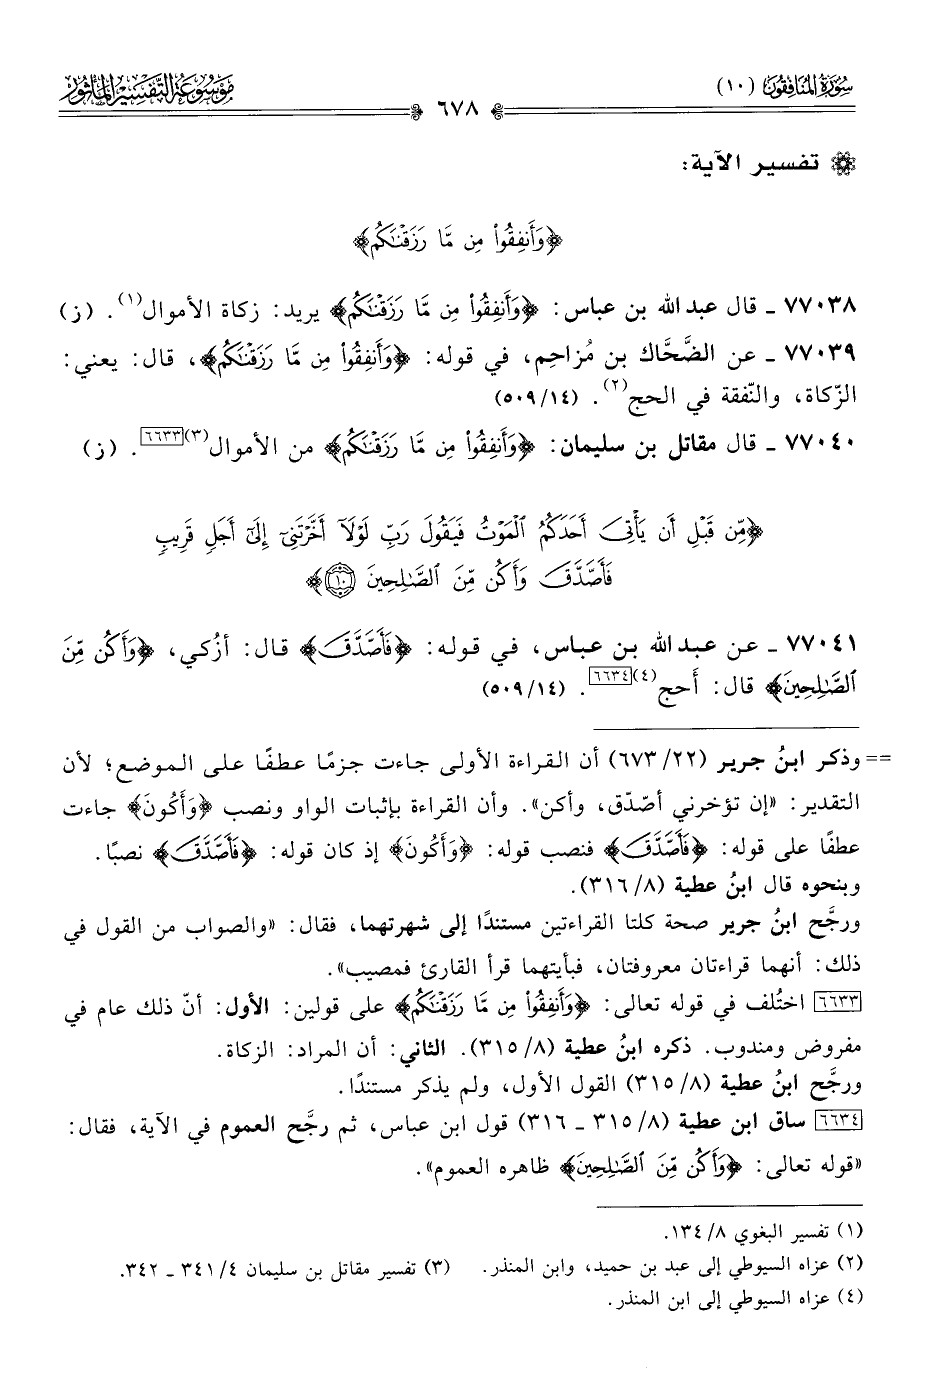 سُورَةُ المُنَافِقُون (١٠)
٦٧٨
مَوْسُوعَة التَّفْسِيْر المَأْثُور
تفسير الآية:
﴿وَأَنفِقُوا۟ مِن مَّا رَزَقْنَـٰكُم﴾
٧٧٠٣٨ ـ قال عبد الله بن عباس: ﴿وَأَنفِقُوا۟ مِن مَّا رَزَقْنَـٰكُم﴾ يريد: زكاة الأموال(١). (ز)
٧٧٠٣٩ ـ عن الضَّحَّاك بن مُزاحِم، في قوله: ﴿وَأَنفِقُوا۟ مِن مَّا رَزَقْنَـٰكُم﴾، قال: يعني:
الزّكاة، والنّفقة في الحج(٢). (١٤/٥٠٩)
٧٧٠٤٠ ـ قال مقاتل بن سليمان: ﴿وَأَنفِقُوا۟ مِن مَّا رَزَقْنَـٰكُم﴾ من الأموال(٣)[٦٦٣٣]. (ز)
﴿مِّن قَبْلِ أَن يَأْتِىَ أَحَدَكُمُ ٱلْمَوْتُ فَيَقُولَ رَبِّ لَوْلَآ أَخَّرْتَنِىٓ إِلَىٰٓ أَجَلٍ قَرِيبٍ
فَأَصَّدَّقَ وَأَكُن مِّنَ ٱلصَّـٰلِحِينَ ١٠﴾
٧٧٠٤١ ـ عن عبد الله بن عباس، في قوله: ﴿فَأَصَّدَّقَ﴾ قال: أزُكي، ﴿وَأَكُن مِّنَ
ٱلصَّـٰلِحِينَ﴾ قال: أَحج(٤)[٦٦٣٤]. (١٤/٥٠٩)
== وذكر ابنُ جرير (٢٢/ ٦٧٣) أن القراءة الأولى جاءت جزمًا عطفًا على الموضع؛ لأن
التقدير: «إن تؤخرني أصّدّق، وأكن». وأن القراءة بإثبات الواو ونصب ﴿وَأَكُونَ﴾ جاءت
عطفًا على قوله: ﴿فَأَصَّدَّقَ﴾ فنصب قوله: ﴿وَأَكُونَ﴾ إذ كان قوله: ﴿فَأَصَّدَّقَ﴾ نصبًا.
وبنحوه قال ابنُ عطية (٨/ ٣١٦).
ورجَّح ابنُ جرير صحة كلتا القراءتين مستندًا إلى شهرتهما، فقال: «والصواب من القول في
ذلك: أنهما قراءتان معروفتان، فبأيتهما قرأ القارئ فمصيب».
[٦٦٣٣] اختُلف في قوله تعالى: ﴿وَأَنفِقُوا۟ مِن مَّا رَزَقْنَـٰكُم﴾ على قولين: الأول: أنّ ذلك عام في
مفروض ومندوب. ذكره ابنُ عطية (٨/ ٣١٥). الثاني: أن المراد: الزكاة.
ورجَّح ابنُ عطية (٨/ ٣١٥) القول الأول، ولم يذكر مستندًا.
[٦٦٣٤] ساق ابن عطية (٨/ ٣١٥ ـ ٣١٦) قول ابن عباس، ثم رجَّح العموم في الآية، فقال:
«قوله تعالى: ﴿وَأَكُن مِّنَ ٱلصَّـٰلِحِينَ﴾ ظاهره العموم».
(١) تفسير البغوي ٨/ ١٣٤.
(٢) عزاه السيوطي إلى عبد بن حميد، وابن المنذر. (٣) تفسير مقاتل بن سليمان ٤/ ٣٤١ ـ ٣٤٢.
(٤) عزاه السيوطي إلى ابن المنذر.